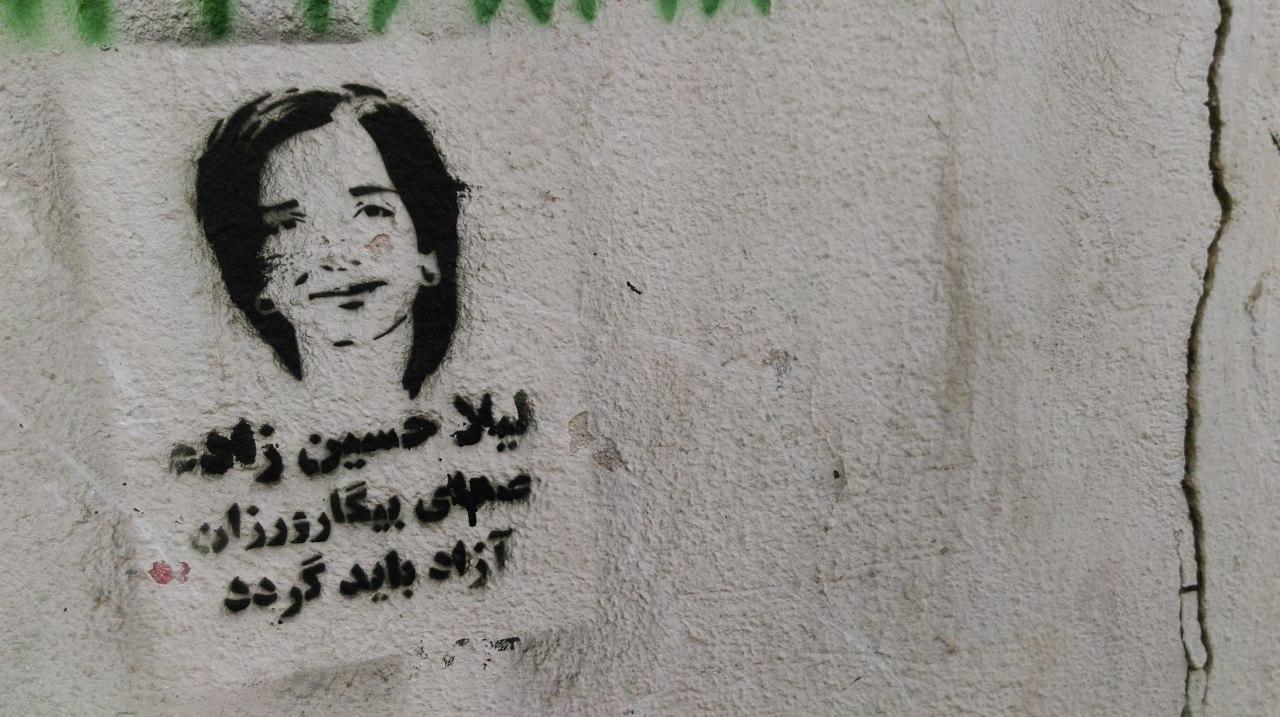 لیلا حسین زاده
صدای بیگارورزان
آزاد باید گردد